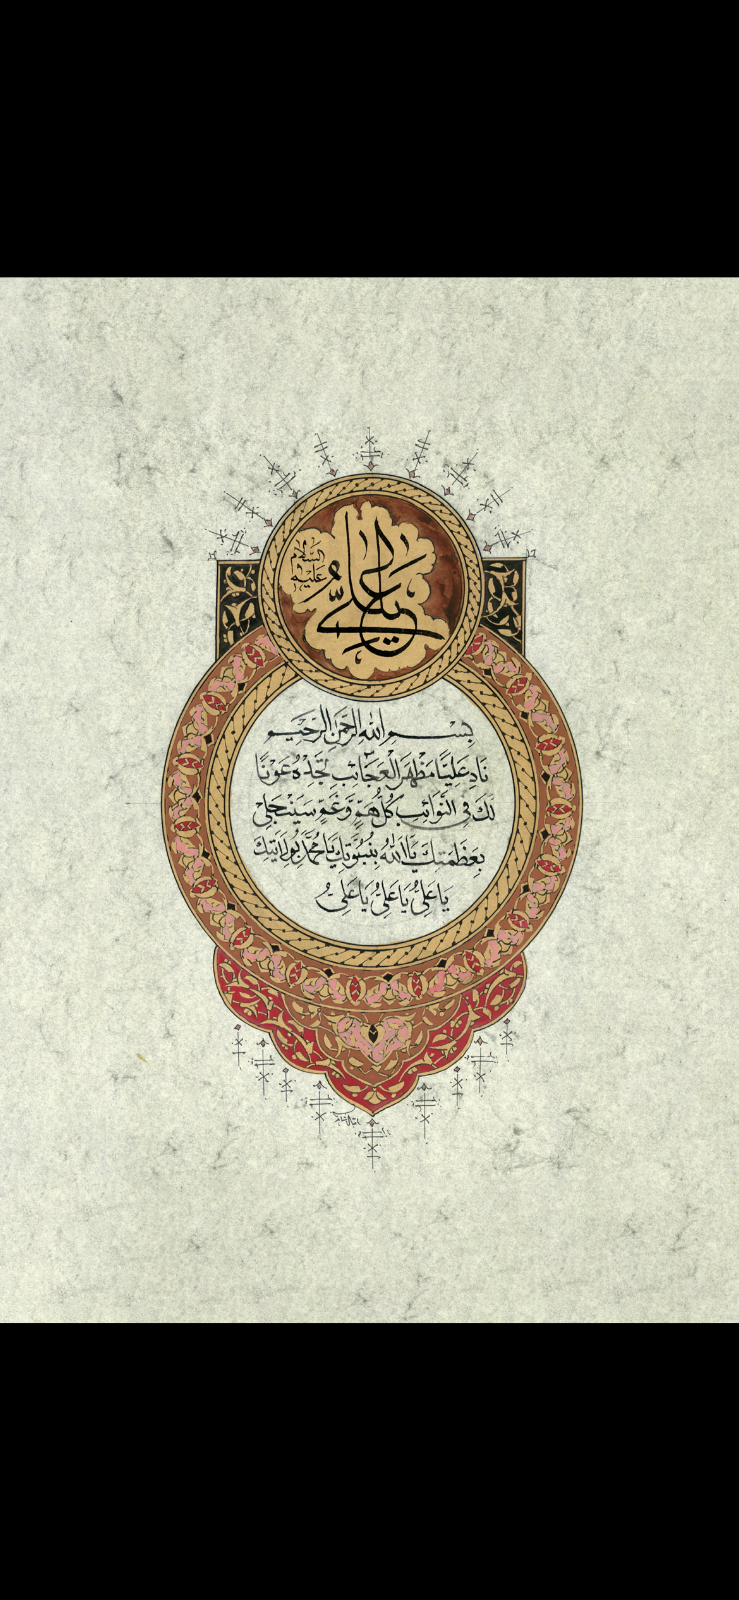 يا علي
عليه السلام
بِسْمِ اللهِ الرَّحْمٰنِ الرَّحِيمِ
نَادِ عَلِيًّا مَظْهَرَ الْعَجَائِبِ تَجِدْهُ عَوْنًا
لَكَ فِي النَّوَائِبِ كُلُّ هَمٍّ وَّغَمٍّ سَيَنْجَلِي
بِعَظَمَتِكَ يَا اَللهُ بِنُبُوَّتِكَ يَا مُحَمَّدُ بِوِلَايَتِكَ
يَا عَلِيُّ يَا عَلِيُّ يَا عَلِيُّ